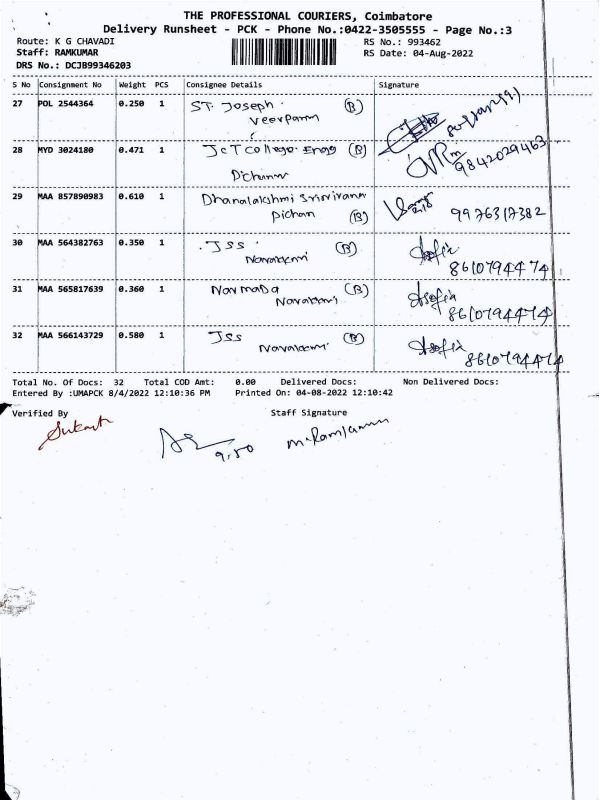 THE PROFESSIONAL COURIERS, Coimbatore
Delivery Runsheet - PCK - Phone No.:0422-3505555 - Page No.:3
Route: K G CHAVADI RS No.: 993462
Staff: RAMKUMAR RS Date: 04-Aug-2022
DRS No.: DCJB99346203
S No Consignment No Weight PCS Consignee Details Signature
27 POL 2544364 0.250 1 ST. Joseph. (B)
28 MYD 3024180 0.471 1 JCT College. Engg (B) 9842029463
29 MAA 857890983 0.610 1 Dhanalakshmi
(B) 9976317382
30 MAA 564382763 0.350 1 JSS (B) Asofia
8610794474
31 MAA 565817639 0.360 1 Narmada (B) Asofia
8610794474
32 MAA 566143729 0.580 1 JSS (B) Asofia
8610794474
Total No. Of Docs: 32 Total COD Amt: 0.00 Delivered Docs: Non Delivered Docs:
Entered By :UMAPCK 8/4/2022 12:10:36 PM Printed On: 04-08-2022 12:10:42
Verified By Staff Signature
9.50